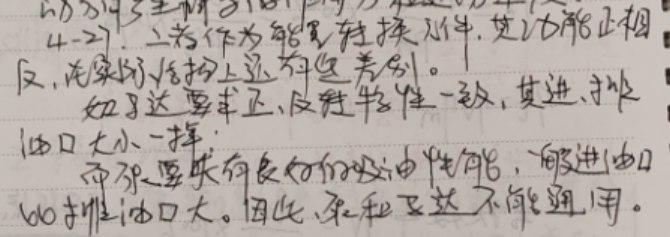 4-27. 二者作为能量转换元件,其功能正相
反,在实际结构上还有些差别。
如马达要求正、反转特性一致,其进、排
油口大小一样;
而泵要求有良好的吸油性能,一般进油口
比排油口大。因此,泵和马达不能通用。